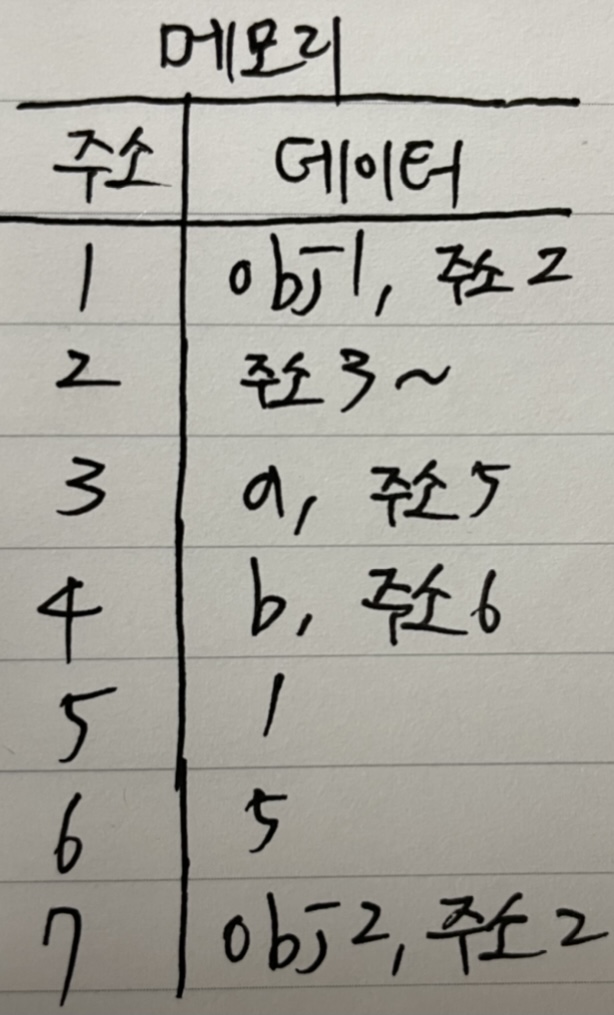 메모리
주소 데이터
1 obj1, 주소 2
2 주소 3~
3 a, 주소 5
4 b, 주소 6
5 1
6 5
7 obj2, 주소 2